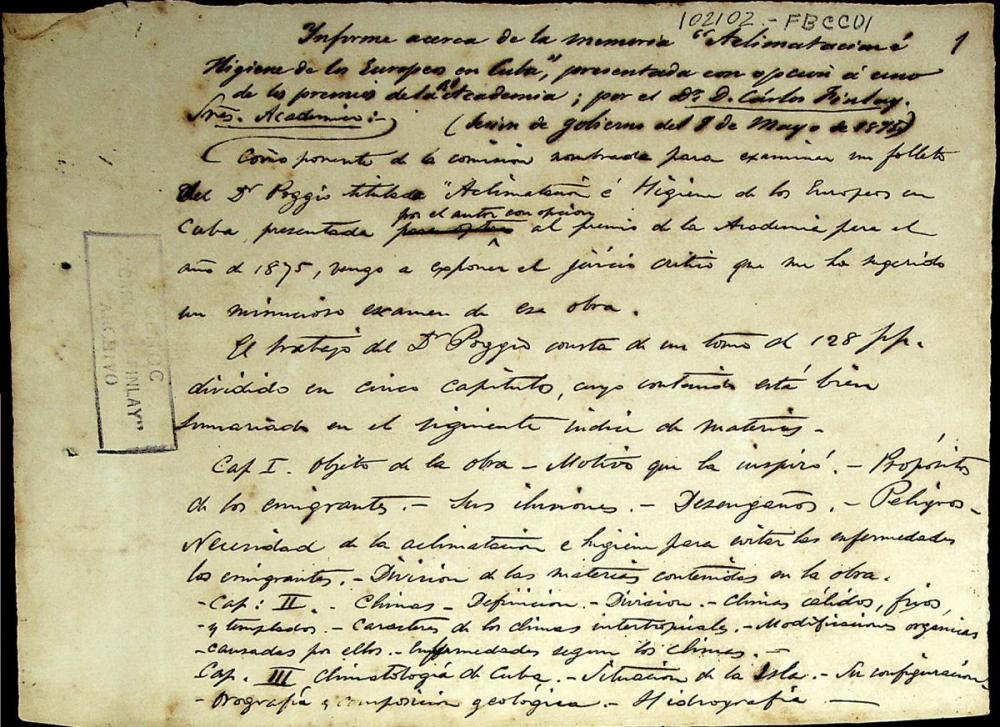 102102 - FBCC01
1
Informe acerca de la memoria "Aclimatacion é
Higiene de los Europeos en Cuba", presentada con opcion á uno
de los premios de la Rl Academia; por el Dr. D. Cárlos Finlay.
Sres. Academicos:
(Sesion de gobierno del 9 de Mayo de 1875)
Como ponente de la comision nombrada para examinar un folleto
del Dr Poggio titulada "Aclimatacion é Higiene de los Europeos en
por el autor con opcion
Cuba, presentada al premio de la Academia para el
año de 1875, vengo a exponer el juicio critico que me ha sugerido
un minucioso examen de esa obra.
El trabajo del Dr Poggio consta de un tomo de 128 pp.
dividido en cinco capitulos, cuyo contenido está bien
sumariado en el siguiente indice de materias -
Cap I. Objeto de la obra - Motivo que la inspiró. - Propósitos
de los emigrantes. - Sus ilusiones. - Desengaños. - Peligros -
Necesidad de la aclimatacion e higiene para evitar las enfermedades
los emigrantes. - Division de las materias contenidas en la obra.
- Cap: II. - Climas - Definicion. - Division. - Climas cálidos, frios,
- y templados. - Caracteres de los climas intertropicales. - Modificaciones organicas
- causadas por ellos. - Enfermedades segun los climas. -
Cap. III Climatología de Cuba. - Situacion de la Isla. - Su configuracion -
- Orografía y composicion geológica. - Hidrografía -
"CARLOS J. FINLAY"
ARCHIVO